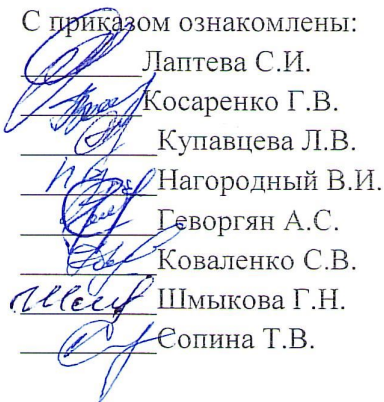 С приказом ознакомлены:
Лаптева С.И.
Косаренко Г.В.
Купавцева Л.В.
Нагородный В.И.
Геворгян А.С.
Коваленко С.В.
Шмыкова Г.Н.
Сопина Т.В.